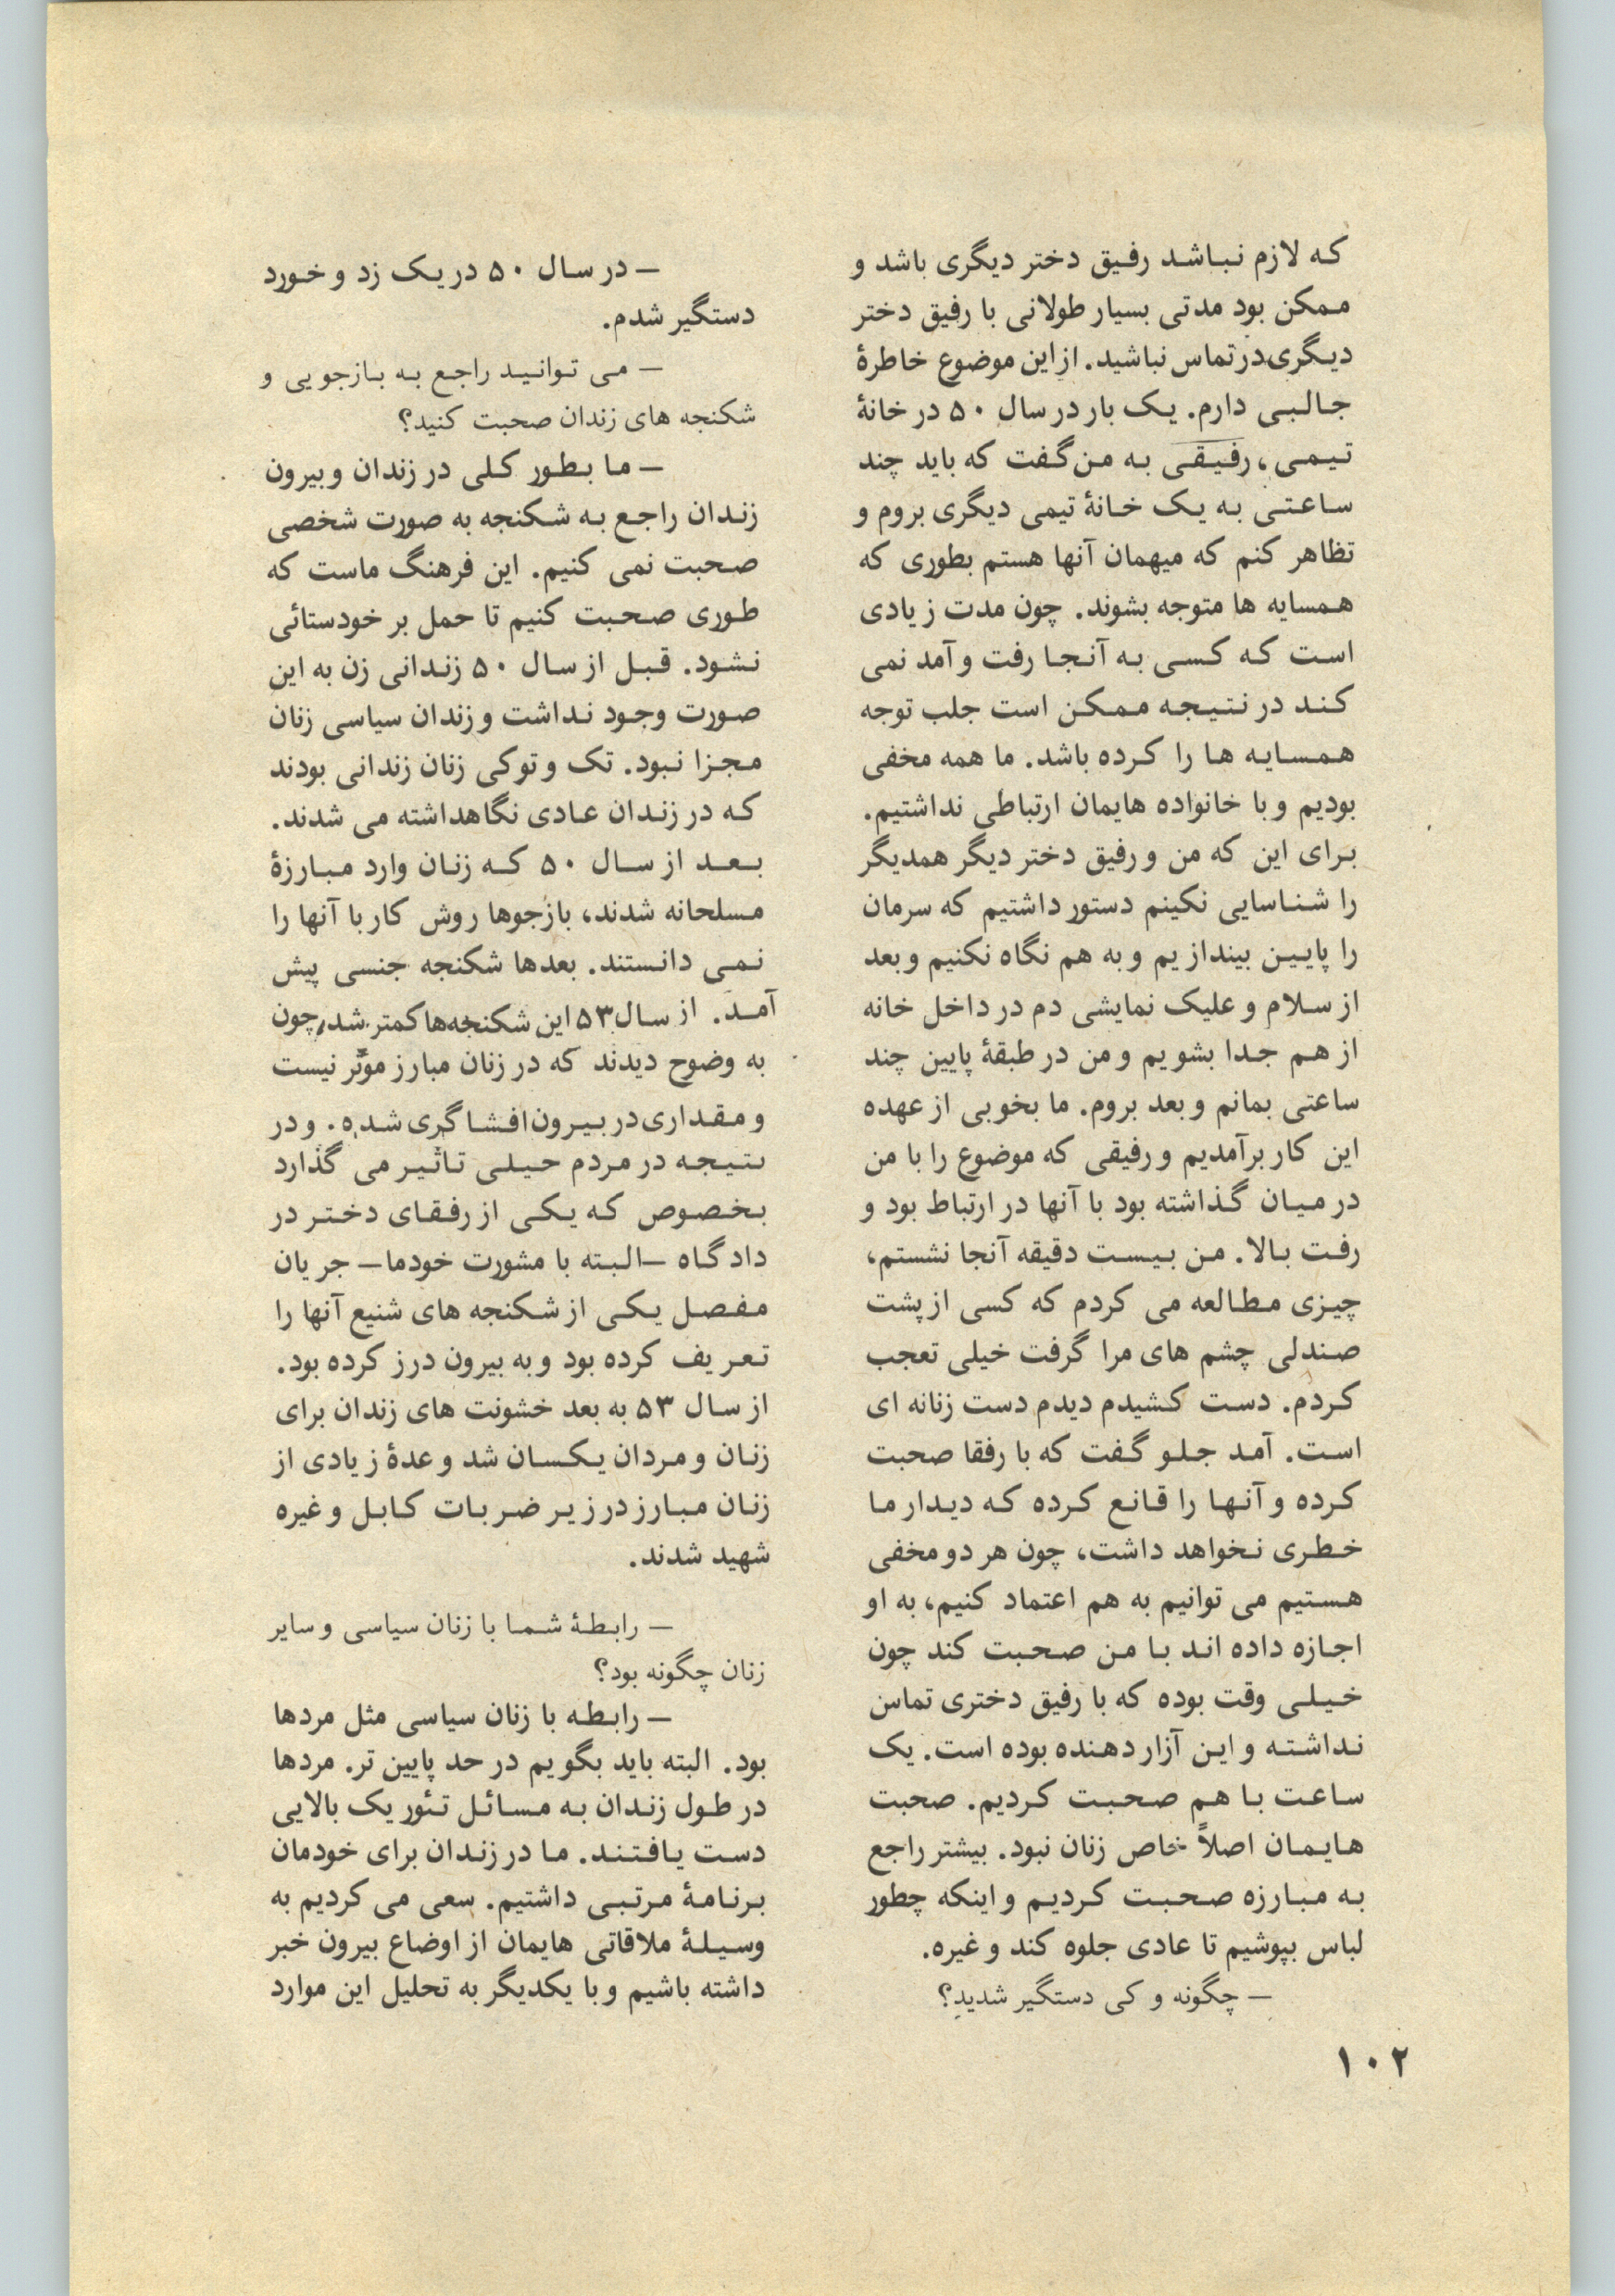 که لازم نباشد رفیق دختر دیگری باشد و
ممکن بود مدتی بسیار طولانی با رفیق دختر
دیگری در تماس نباشید. از این موضوع خاطرهٔ
جالبی دارم. یک بار در سال ۵۰ در خانهٔ
تیمی، رفیقی به من گفت که باید چند
ساعتی به یک خانهٔ تیمی دیگری بروم و
تظاهر کنم که میهمان آنها هستم بطوری که
همسایه ها متوجه بشوند. چون مدت زیادی
است که کسی به آنجا رفت و آمد نمی
کند در نتیجه ممکن است جلب توجه
همسایه ها را کرده باشد. ما همه مخفی
بودیم و با خانواده هایمان ارتباطی نداشتیم.
برای این که من و رفیق دختر دیگر همدیگر
را شناسایی نکینم دستور داشتیم که سرمان
را پایین بیندازیم و به هم نگاه نکنیم و بعد
از سلام و علیک نمایشی دم در داخل خانه
از هم جدا بشویم و من در طبقهٔ پایین چند
ساعتی بمانم و بعد بروم. ما بخوبی از عهده
این کار برآمدیم و رفیقی که موضوع را با من
در میان گذاشته بود با آنها در ارتباط بود و
رفت بالا. من بیست دقیقه آنجا نشستم،
چیزی مطالعه می کردم که کسی از پشت
صندلی چشم های مرا گرفت خیلی تعجب
کردم. دست کشیدم دیدم دست زنانه ای
است. آمد جلو گفت که با رفقا صحبت
کرده و آنها را قانع کرده که دیدار ما
خطری نخواهد داشت، چون هر دو مخفی
هستیم می توانیم به هم اعتماد کنیم، به او
اجازه داده اند با من صحبت کند چون
خیلی وقت بوده که با رفیق دختری تماس
نداشته و این آزار دهنده بوده است. یک
ساعت با هم صحبت کردیم. صحبت
هایمان اصلاً خاص زنان نبود. بیشتر راجع
به مبارزه صحبت کردیم و اینکه چطور
لباس بپوشیم تا عادی جلوه کند و غیره.
— چگونه و کی دستگیر شدید؟
— در سال ۵۰ در یک زد و خورد
دستگیر شدم.
— می توانید راجع به بازجویی و
شکنجه های زندان صحبت کنید؟
— ما بطور کلی در زندان و بیرون
زندان راجع به شکنجه به صورت شخصی
صحبت نمی کنیم. این فرهنگ ماست که
طوری صحبت کنیم تا حمل بر خودستائی
نشود. قبل از سال ۵۰ زندانی زن به این
صورت وجود نداشت و زندان سیاسی زنان
مجزا نبود. تک و توکی زنان زندانی بودند
که در زندان عادی نگاهداشته می شدند.
بعد از سال ۵۰ که زنان وارد مبارزهٔ
مسلحانه شدند، بازجوها روش کار با آنها را
نمی دانستند. بعدها شکنجه جنسی پیش
آمد. از سال ۵۳ این شکنجه‌ها کمتر شد، چون
به وضوح دیدند که در زنان مبارز موثر نیست
و مقداری در بیرون افشاگری شده. و در
نتیجه در مردم خیلی تاثیر می گذارد
بخصوص که یکی از رفقای دختر در
دادگاه —البته با مشورت خودما— جریان
مفصل یکی از شکنجه های شنیع آنها را
تعریف کرده بود و به بیرون درز کرده بود.
از سال ۵۳ به بعد خشونت های زندان برای
زنان و مردان یکسان شد و عدهٔ زیادی از
زنان مبارز در زیر ضربات کابل و غیره
شهید شدند.
— رابطهٔ شما با زنان سیاسی و سایر
زنان چگونه بود؟
— رابطه با زنان سیاسی مثل مردها
بود. البته باید بگویم در حد پایین تر. مردها
در طول زندان به مسائل تئوریک بالایی
دست یافتند. ما در زندان برای خودمان
برنامهٔ مرتبی داشتیم. سعی می کردیم به
وسیلهٔ ملاقاتی هایمان از اوضاع بیرون خبر
داشته باشیم و با یکدیگر به تحلیل این موارد
۱۰۲